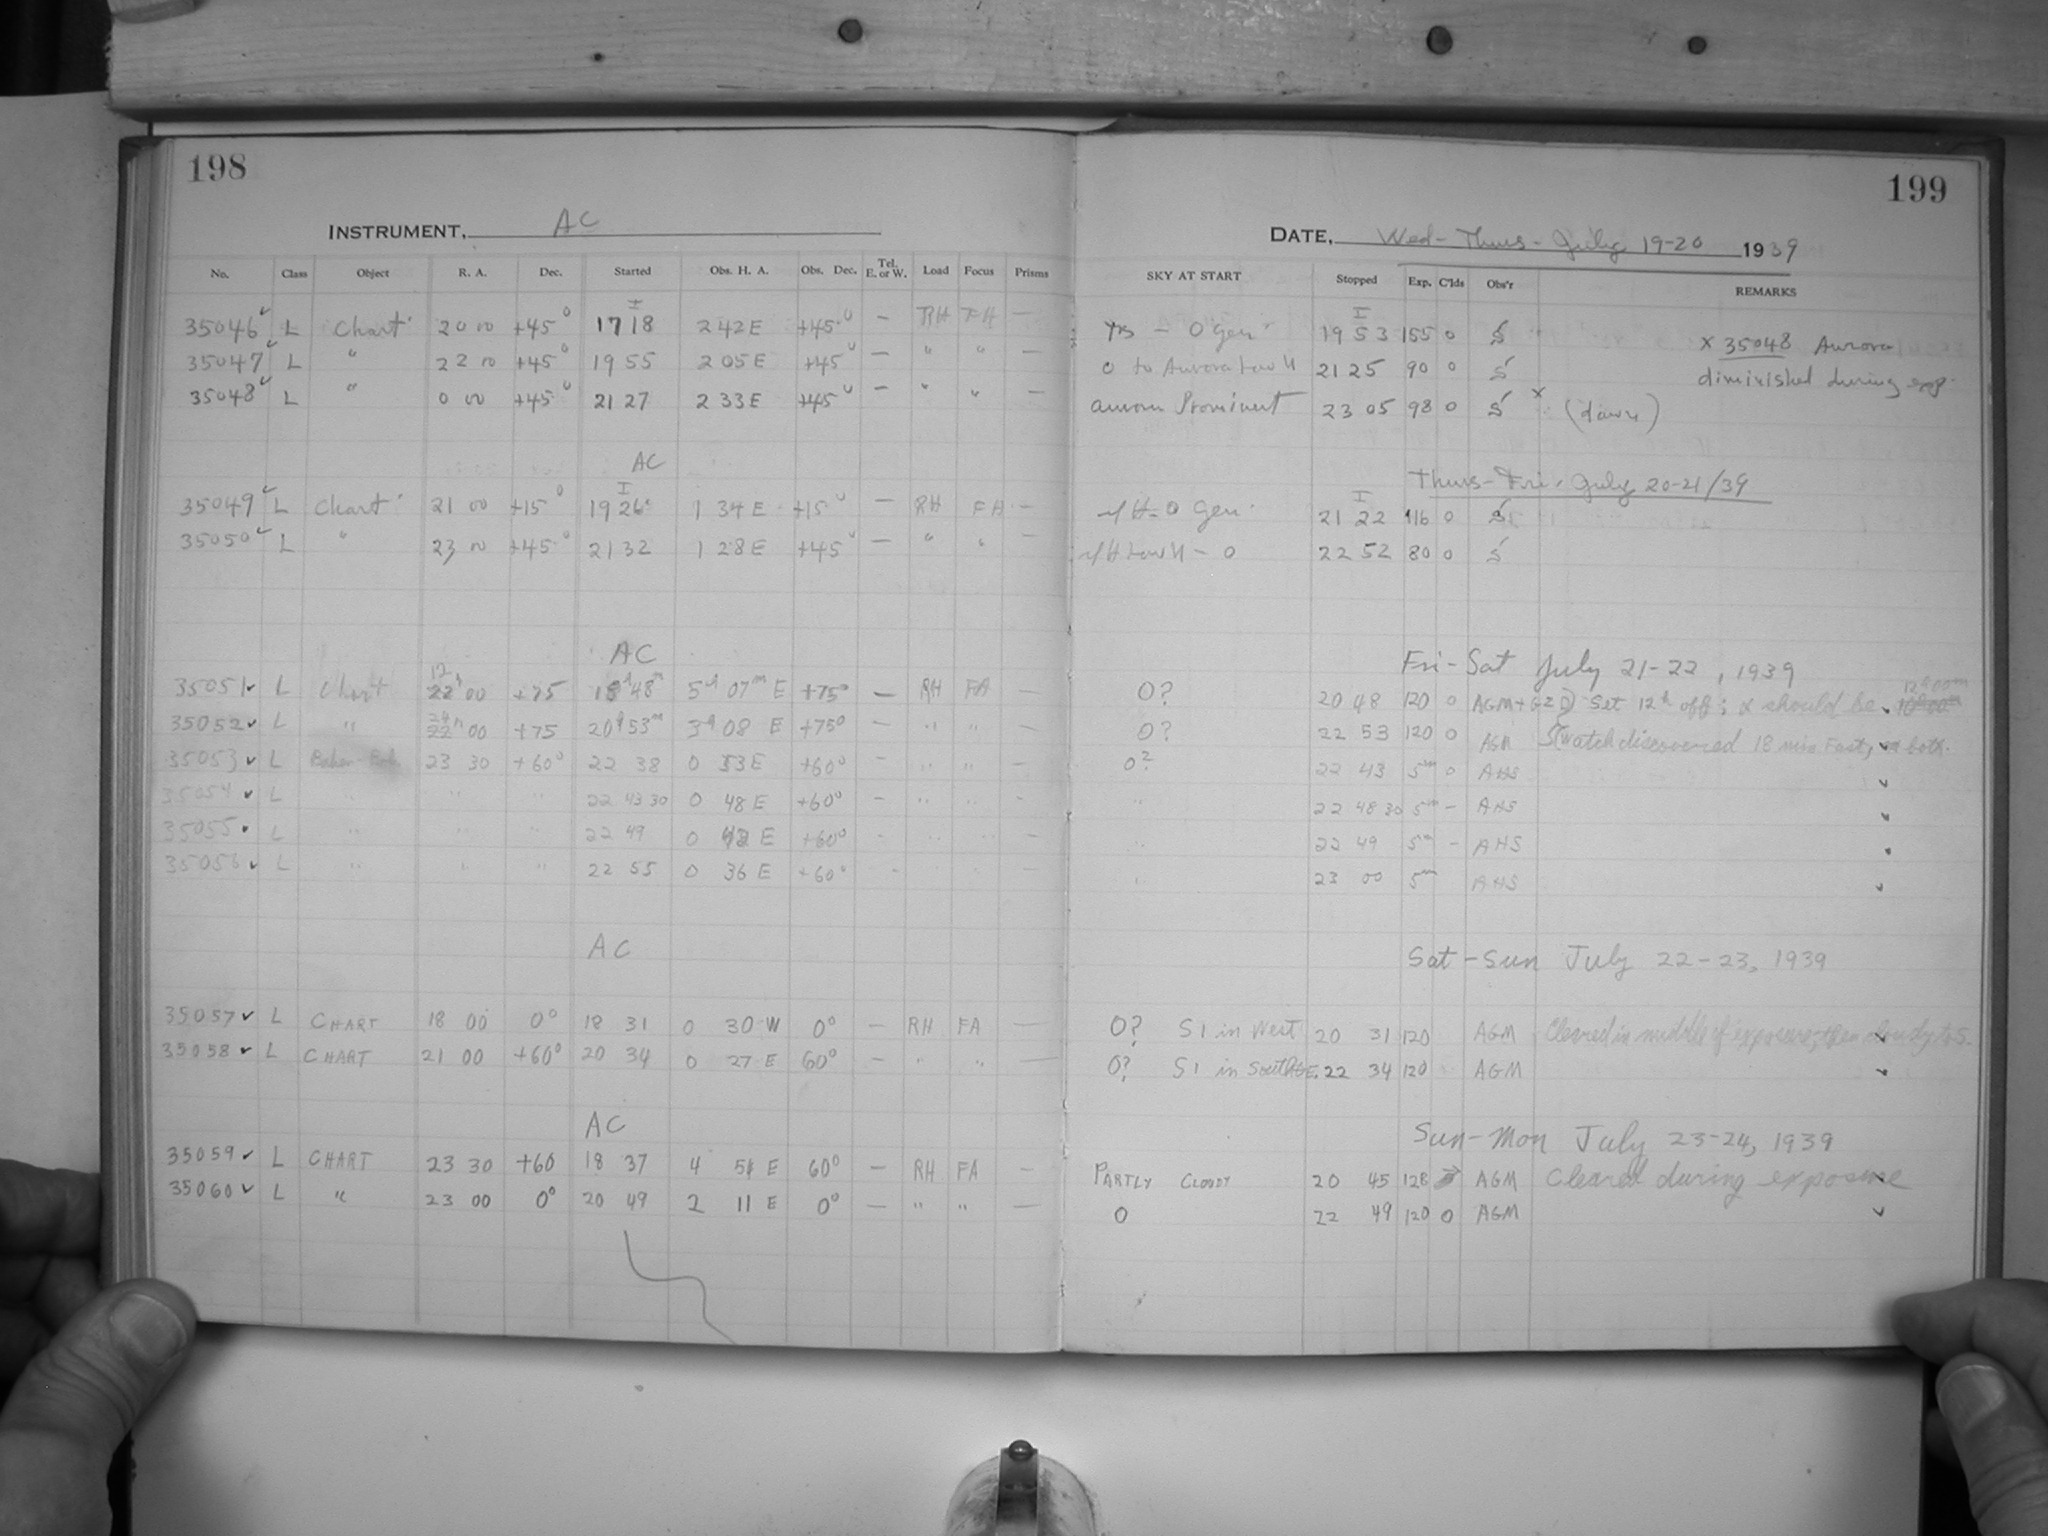 198
INSTRUMENT, AC
No. Class Object R. A. Dec. Started Obs. H. A. Obs. Dec. Tel. E. or W. Load Focus Prisms
35046 ✓ L Chart 20 00 +45° 17 18 2 42 E +45° — RH FA —
35047 ✓ L " 22 00 +45° 19 55 2 05 E +45° — " " —
35048 ✓ L " 0 00 +45° 21 27 2 33 E +45° — " " —
AC
35049 ✓ L Chart 21 00 +15° 19 26 1 34 E +15° — RH FA —
35050 ✓ L " 23 00 +45° 21 32 1 28 E +45° — " " —
AC
35051 ✓ L Chart 12h 22 00 +75 18h 48m 5h 07m E +75° — RH FA —
35052 ✓ L " 24h 22 00 +75 20h 53m 3h 08 E +75° — " " —
35053 ✓ L 23 30 +60° 22 38 0 53 E +60° — " " —
35054 ✓ L " " " 22 43 30 0 48 E +60° — " " —
35055 ✓ L " " " 22 49 0 42 E +60° - " " —
35056 ✓ L " " " 22 55 0 36 E +60°
AC
35057 ✓ L CHART 18 00 0° 18 31 0 30 W 0° — RH FA —
35058 ✓ L CHART 21 00 +60° 20 34 0 27 E 60° — " " —
AC
35059 ✓ L CHART 23 30 +60 18 37 4 51 E 60° — RH FA —
35060 ✓ L " 23 00 0° 20 49 2 11 E 0° — " " —
199
DATE, Wed - Thurs - July 19-20 1939
SKY AT START Stopped Exp. C'lds Obs'r REMARKS
0 Gen. 19 53 155 0 S x 35048 Aurora
0 to Aurora Low N 21 25 90 0 S diminished during exp.
aurora Prominent 23 05 98 0 S x (dawn)
Thurs - Fri. July 20-21/39
0 Gen. 21 22 116 0 S
Low N - 0 22 52 80 0 S
Fri - Sat July 21-22, 1939
0? 20 48 120 0 AGM + Set 12h off; α should be 12h00m
0? 22 53 120 0 AGM (Watch discovered 18 min Fast, both.
0? 22 43 5m 0 AHS ✓
" 22 48 30 5m - AHS ✓
" 22 49 5m - AHS
" 23 00 5m AHS ✓
Sat - Sun July 22-23, 1939
0? S1 in West 20 31 120 AGM Cleared in middle of exposure, then cloudy to S.
0? S1 in South 22 34 120 AGM ✓
Sun - Mon July 23-24, 1939
PARTLY CLOUDY 20 45 128 AGM Cleared during exposure
0 22 49 120 0 AGM ✓